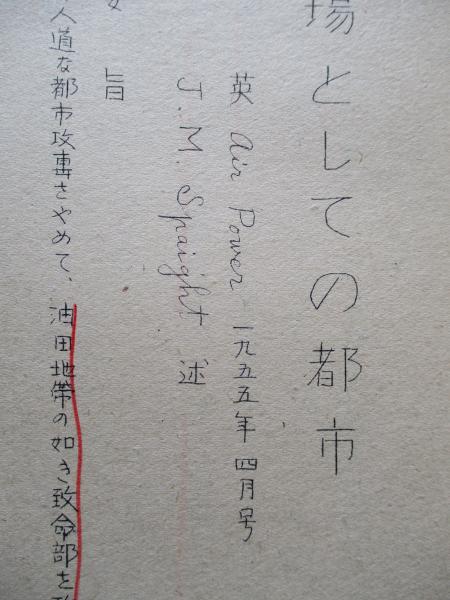 場としての都市
英 Air Power 一九五五年 四月号
J. M. Spaight 述
旨
人道な都市攻撃をやめて、油田地帯の如き致命部を